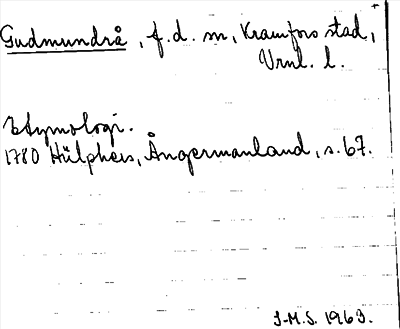 Gudmundrå, f.d. sn, Kramfors stad,
Vrnl. l.
Etymologi.
1780 Hülphers, Ångermanland, s. 67.
J-M.S. 1963.